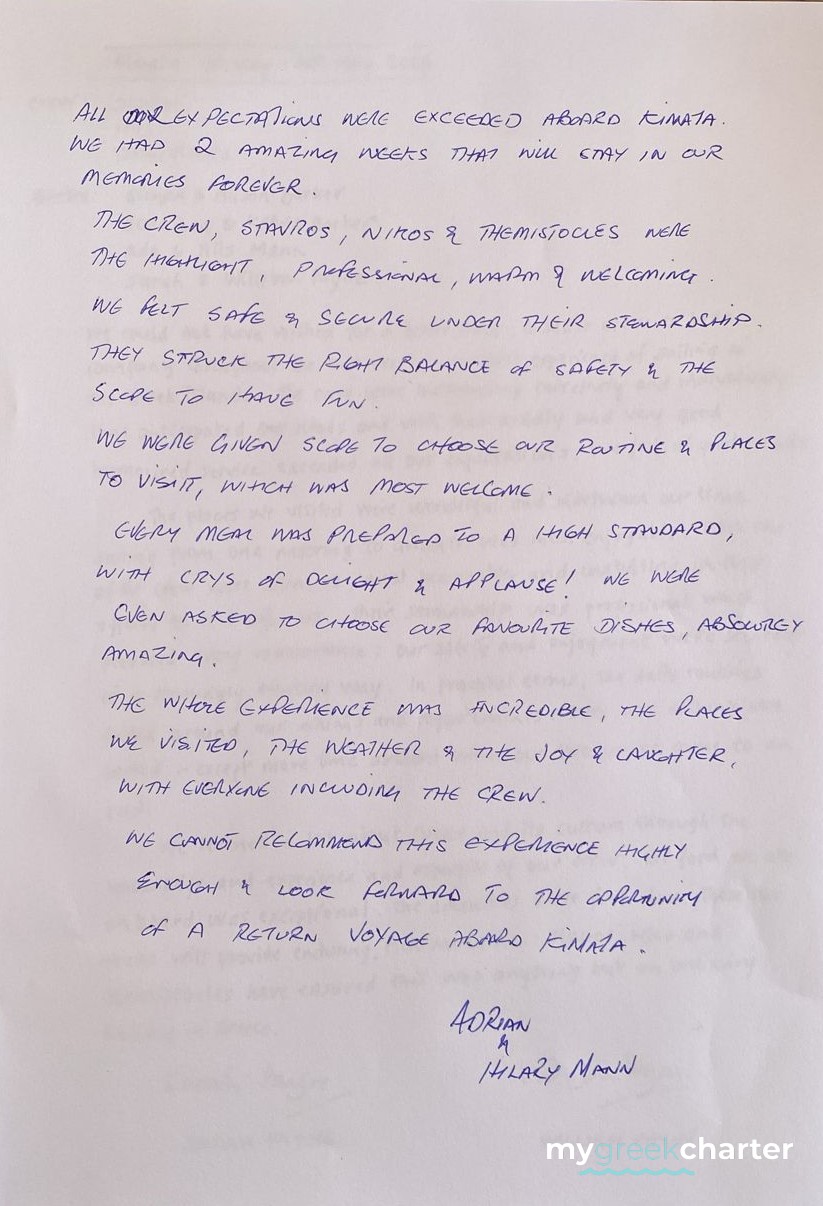 ALL OUR EXPECTATIONS WERE EXCEEDED ABOARD KIMATA.
WE HAD 2 AMAZING WEEKS THAT WILL STAY IN OUR
MEMORIES FOREVER.
THE CREW, STAVROS, NIKOS & THEMISTOCLES WERE
THE HIGHLIGHT, PROFESSIONAL, WARM & WELCOMING.
WE FELT SAFE & SECURE UNDER THEIR STEWARDSHIP.
THEY STRUCK THE RIGHT BALANCE OF SAFETY & THE
SCOPE TO HAVE FUN.
WE WERE GIVEN SCOPE TO CHOOSE OUR ROUTINE & PLACES
TO VISIT, WHICH WAS MOST WELCOME.
EVERY MEAL WAS PREPARED TO A HIGH STANDARD,
WITH CRYS OF DELIGHT & APPLAUSE! WE WERE
EVEN ASKED TO CHOOSE OUR FAVOURITE DISHES, ABSOLUTEY
AMAZING.
THE WHOLE EXPERIENCE WAS INCREDIBLE, THE PLACES
WE VISITED, THE WEATHER & THE JOY & LAUGHTER,
WITH EVERYONE INCLUDING THE CREW.
WE CANNOT RECOMMEND THIS EXPERIENCE HIGHLY
ENOUGH & LOOK FORWARD TO THE OPPORTUNITY
OF A RETURN VOYAGE ABOARD KIMATA.
ADRIAN
&
HILARY MANN
mygreekcharter